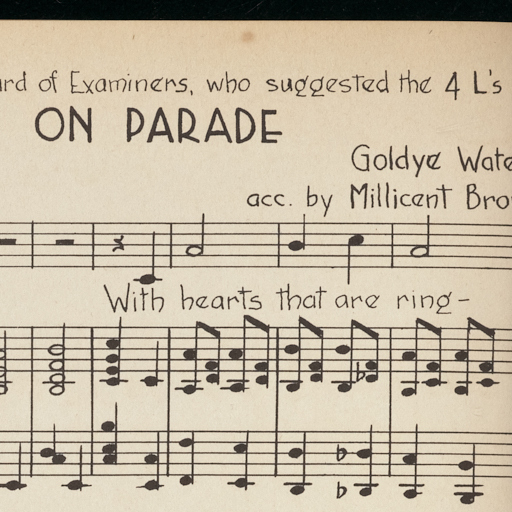 of Examiners, who suggested the 4 L's
ON PARADE
Goldye
acc. by Millicent
With hearts that are ring-